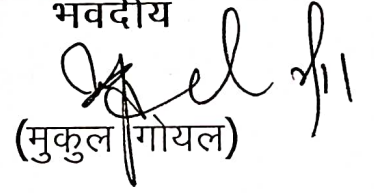 भवदीय
(मुकुल गोयल)